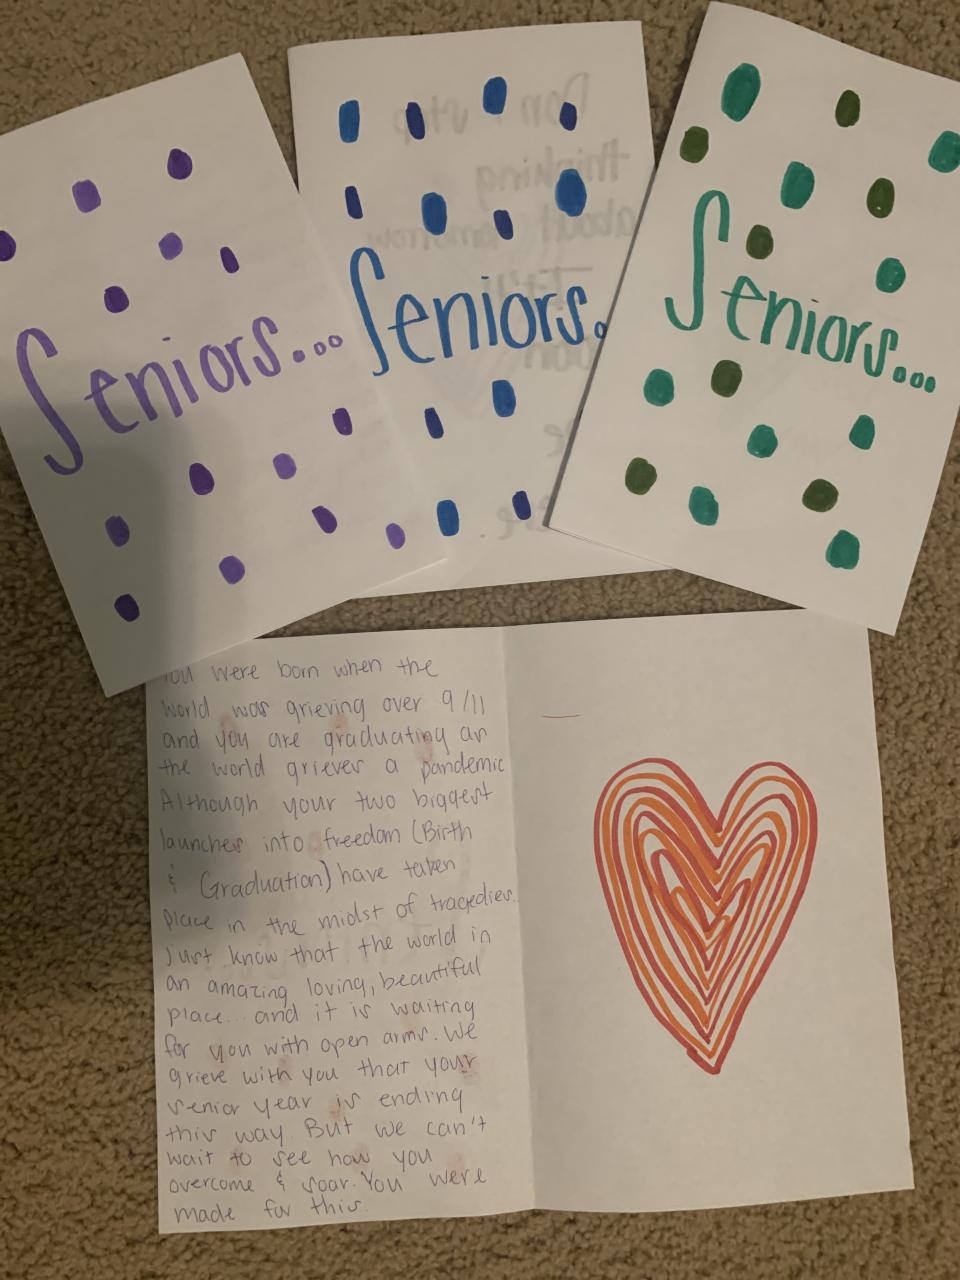 Seniors...
Seniors.
Seniors...
Don't stop
thinking
about tomorrow
It'll
soon
be
here.
You were born when the
world was grieving over 9/11
and you are graduating as
the world grieves a pandemic
Although your two biggest
launches into freedom (Birth
& Graduation) have taken
place in the midst of tragedies.
Just know that the world is
an amazing loving, beautiful
place... and it is waiting
for you with open arms. We
grieve with you that your
senior year is ending
this way. But we can't
wait to see how you
overcome & soar. You were
made for this.